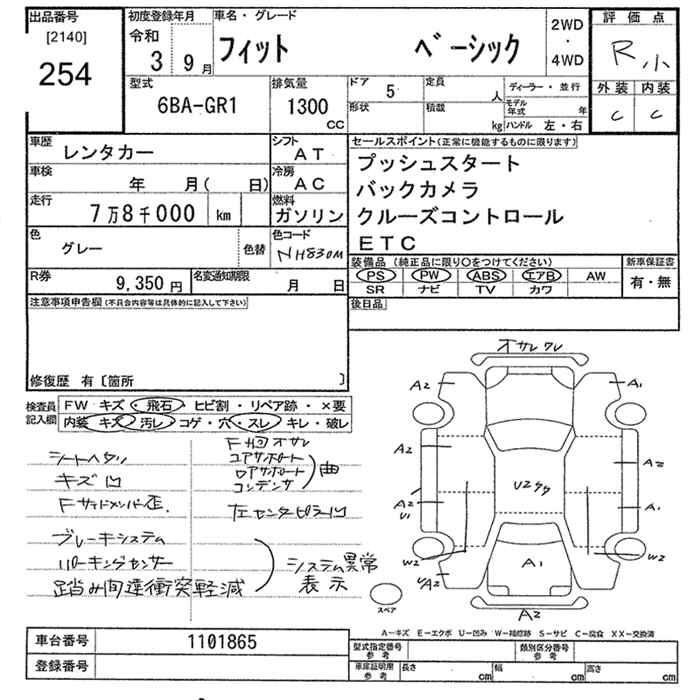 出品番号
[2140]
254
初度登録年月
令和
3 9月
車名・グレード
フィット ベーシック
2WD
・
4WD
評価点
R小
外装 内装
C C
型式
6BA-GR1
排気量
1300
CC
ドア 5
定員 人
ディーラー・並行
形状
積載 kg
モデル年式 年
ハンドル 左・右
車歴 レンタカー
シフト AT
車検 年 月( 日)
冷房 AC
走行 7万8千000 km
燃料 ガソリン
色 グレー 色替
色コード NH830M
R券 9,350円
名変通知期限 月 日
セールスポイント(正常に機能するものに限ります)
プッシュスタート
バックカメラ
クルーズコントロール
ETC
装備品(純正品に限り〇をつけてください)
PS PW ABS エアB AW
SR ナビ TV カワ
新車保証書
有・無
注意事項申告欄(不具合内容等は具体的に記入して下さい)
後日品
修復歴 有〔箇所 〕
検査員記入欄
FW キズ・飛石・ヒビ割・リペア跡・×要
内装 キズ・汚レ・コゲ・穴・スレ・キレ・破レ
シートヘタリ
キズ凹
Fサイドメンバー歪.
ブレーキシステム
パーキングセンサー
踏み間違衝突軽減
システム異常
表示
F廻オサレ
コアサポート
ロアサポート
コンデンサ
曲
左センターピラー凹
オサレ ワレ
A2
A1
A2
A2
A2
U1
A1
U2
A1
W2
W2
A2
スペア
A2
A－キズ E－エクボ U－凹み W－補修跡 S－サビ C－腐食 XX－交換済
車台番号 1101865
登録番号
型式指定番号
参考
類別区分番号
参考
車庫証明用
参考
長さ cm
幅 cm
高さ cm